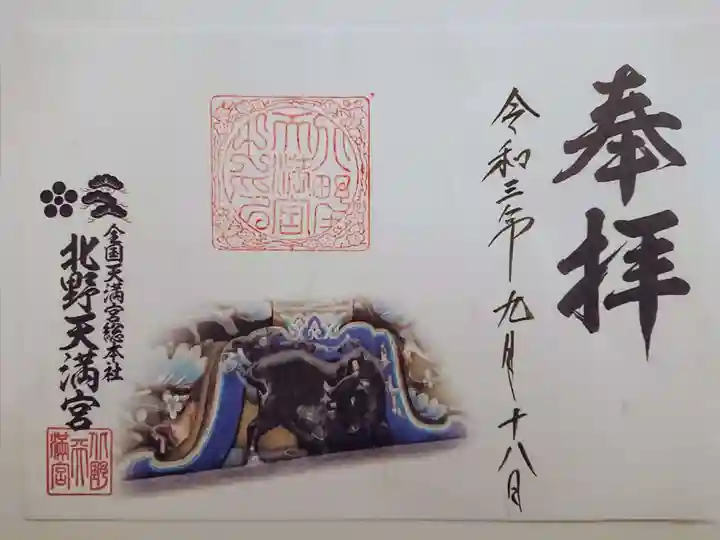 奉拝
令和三年九月十八日
全国天満宮総本社
北野天満宮
北野天満宮